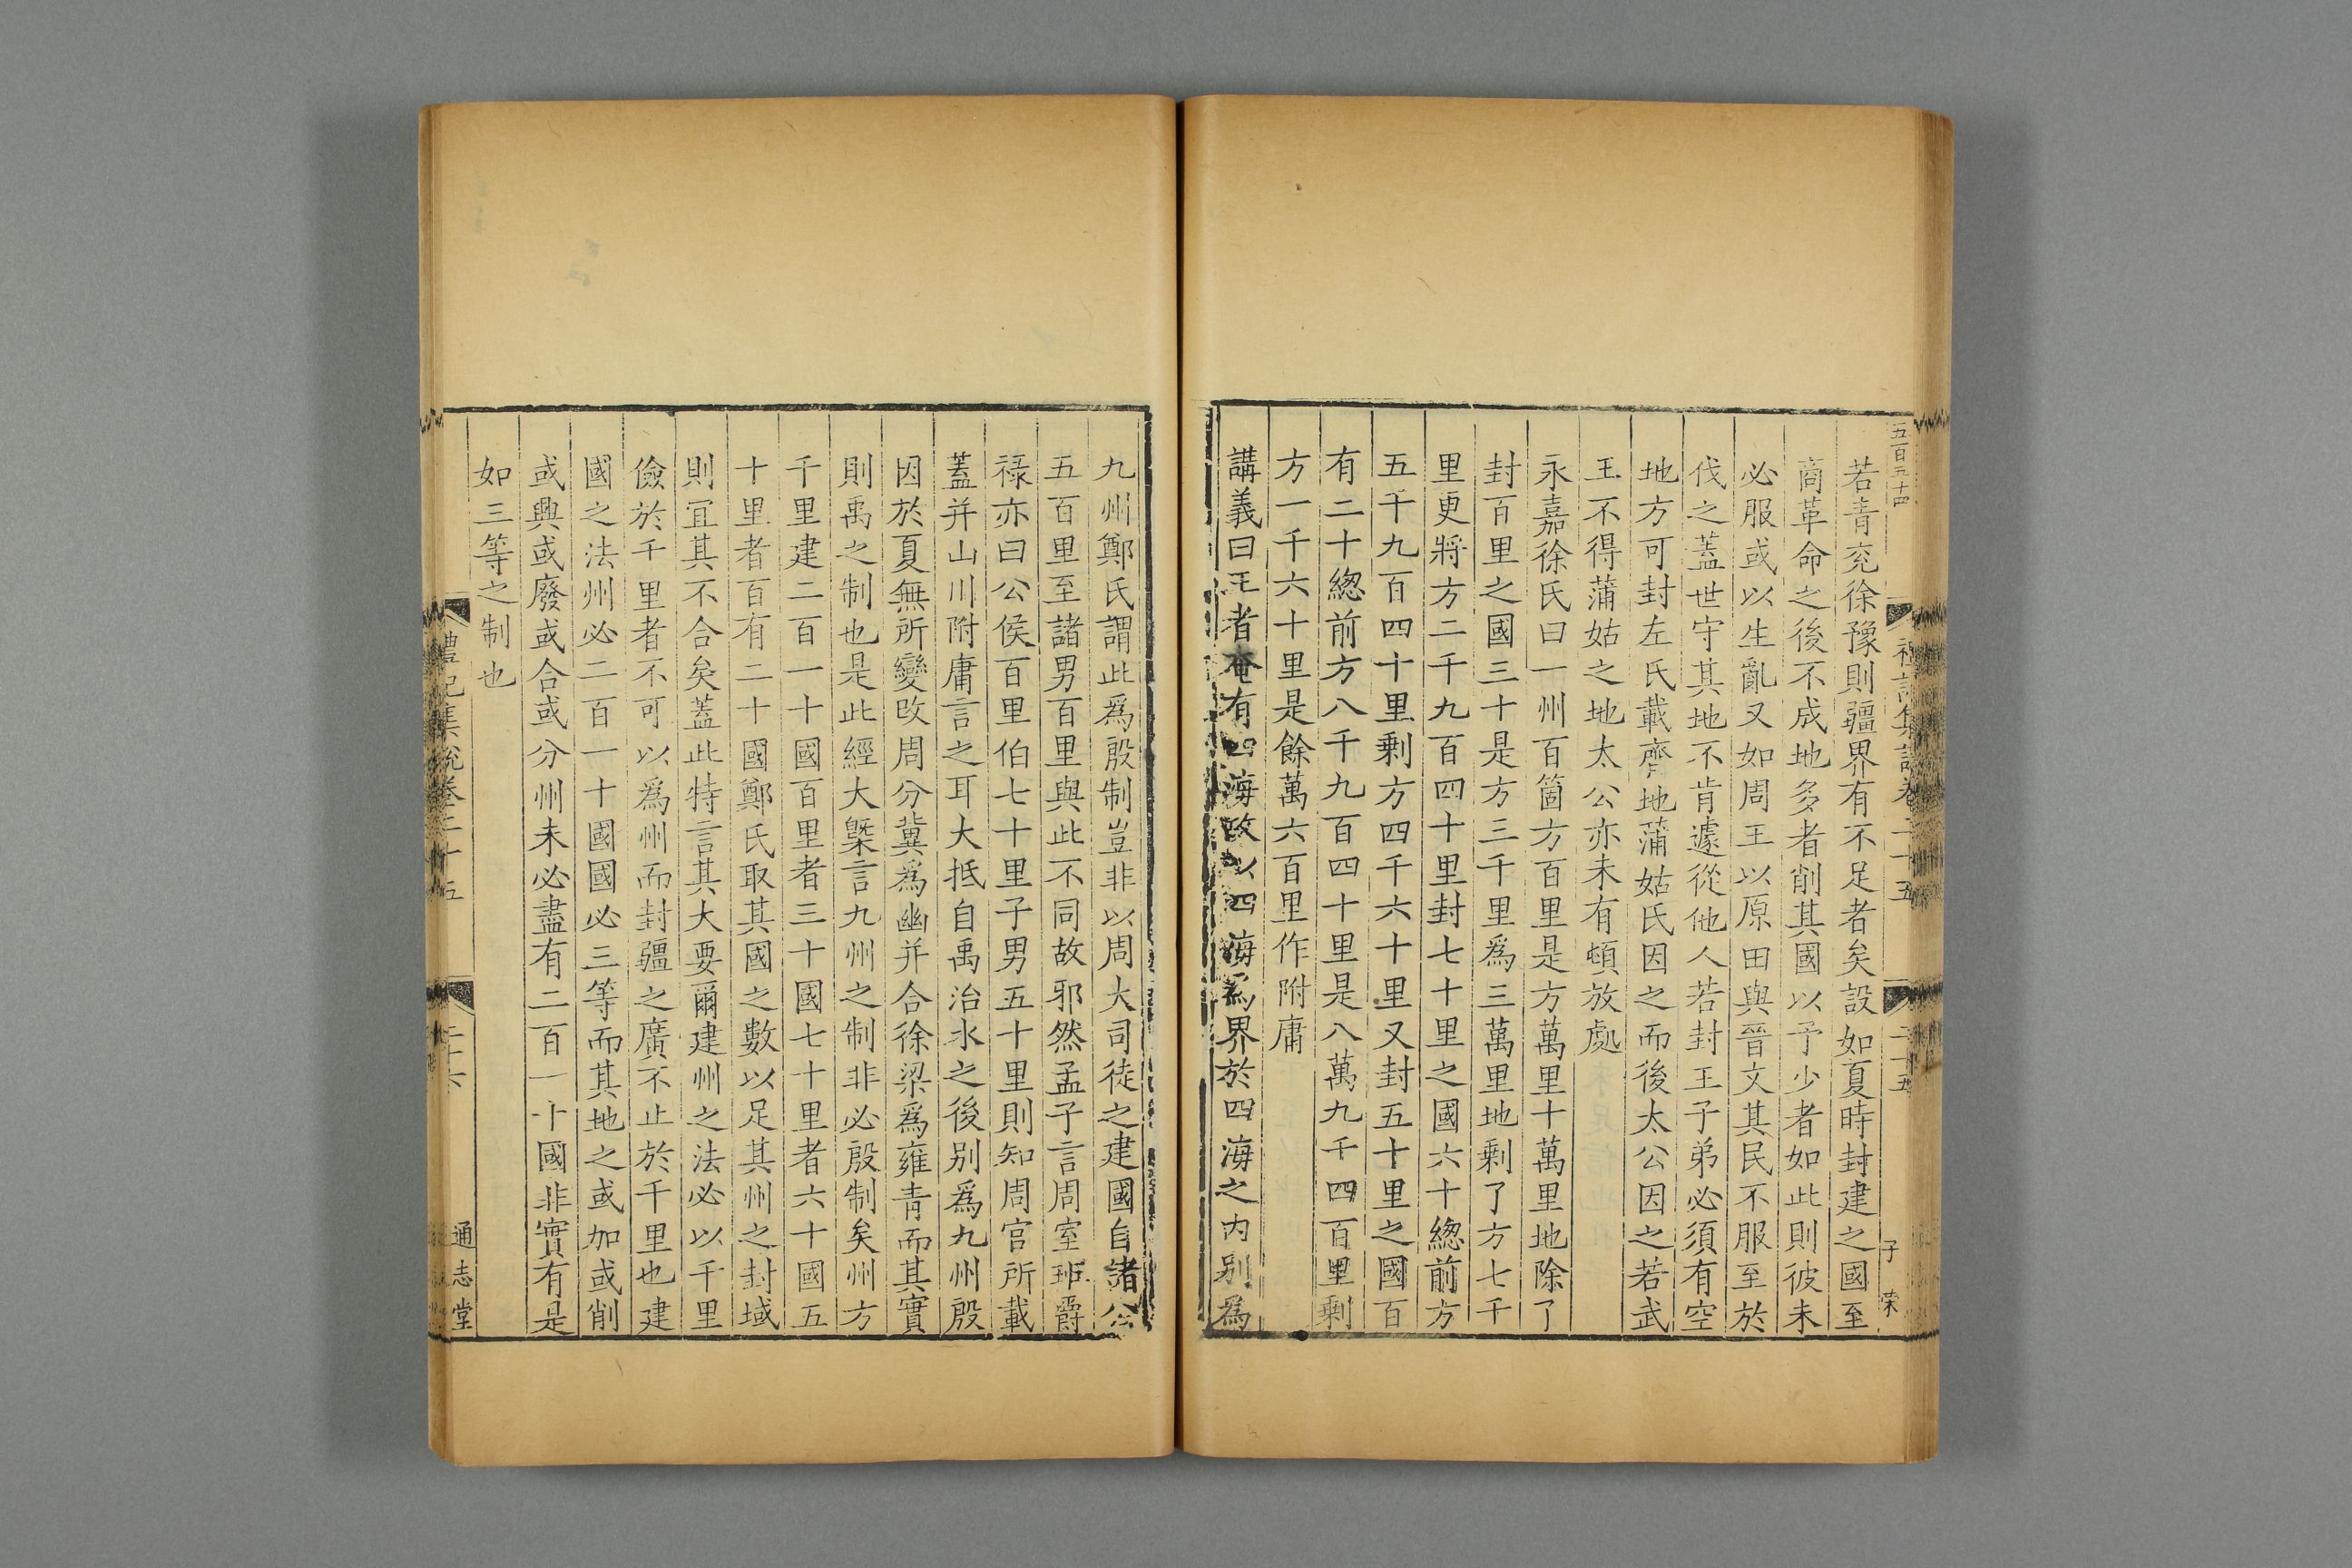 五百五十四
禮記集說卷二十五
二十五
子荣
若青兖徐豫則疆界有不足者矣設如夏時封建之國至
商革命之後不成地多者削其國以予少者如此則彼未
必服或以生亂又如周王以原田與晉文其民不服至於
伐之蓋世守其地不肯遽從他人若封王子弟必須有空
地方可封左氏載齊地蒲姑氏因之而後太公因之若武
王不得蒲姑之地太公亦未有頓放處
永嘉徐氏曰一州百箇方百里是方萬里十萬里地除了
封百里之國三十是方三千里爲三萬里地剩了方七千
里更將方二千九百四十里封七十里之國六十緫前方
五千九百四十里剩方四千六十里又封五十里之國百
有二十緫前方八千九百四十里是八萬九千四百里剩
方一千六十里是餘萬六百里作附庸
講義曰王者奄有四海故以四海爲界於四海之内别爲
九州鄭氏謂此爲殷制豈非以周大司徒之建國自諸公
五百里至諸男百里與此不同故邪然孟子言周室班爵
祿亦曰公侯百里伯七十里子男五十里則知周官所載
蓋并山川附庸言之耳大抵自禹治水之後别爲九州殷
因於夏無所變改周分冀爲幽并合徐梁爲雍青而其實
則禹之制也是此經大槩言九州之制非必殷制矣州方
千里建二百一十國百里者三十國七十里者六十國五
十里者百有二十國鄭氏取其國之數以足其州之封域
則宜其不合矣蓋此特言其大要爾建州之法必以千里
儉於千里者不可以爲州而封疆之廣不止於千里也建
國之法州必二百一十國國必三等而其地之或加或削
或興或廢或合或分州未必盡有二百一十國非實有是
如三等之制也
禮記集說卷二十五
二十六
通志堂